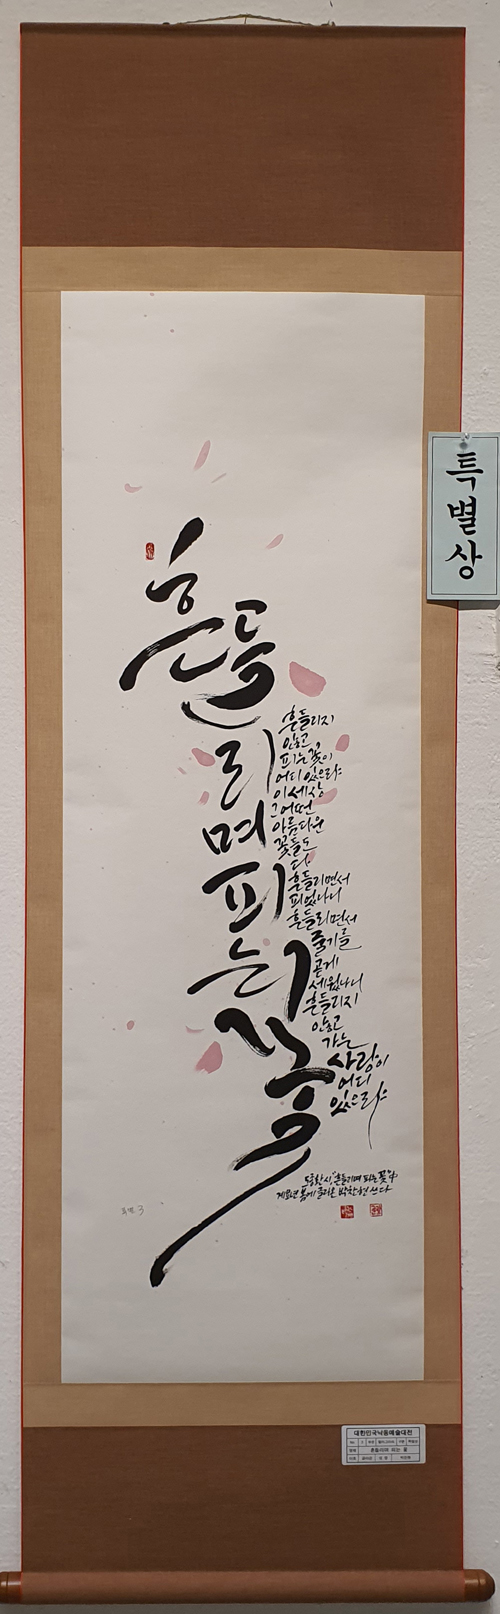 특별상
흔들
리
며
피
는
꽃
흔들리지
않고
피는 꽃이
어디 있으랴
이 세상
그 어떤
아름다운
꽃들도
다
흔들리면서
피었나니
흔들리면서
줄기를
곧게
세웠나니
흔들리지
않고
가는
사랑이
어디
있으랴
도종환 시 "흔들리며 피는 꽃" 中
계묘년 봄에 쓰다
대한민국낙동예술대전
흔들리며 피는 꽃